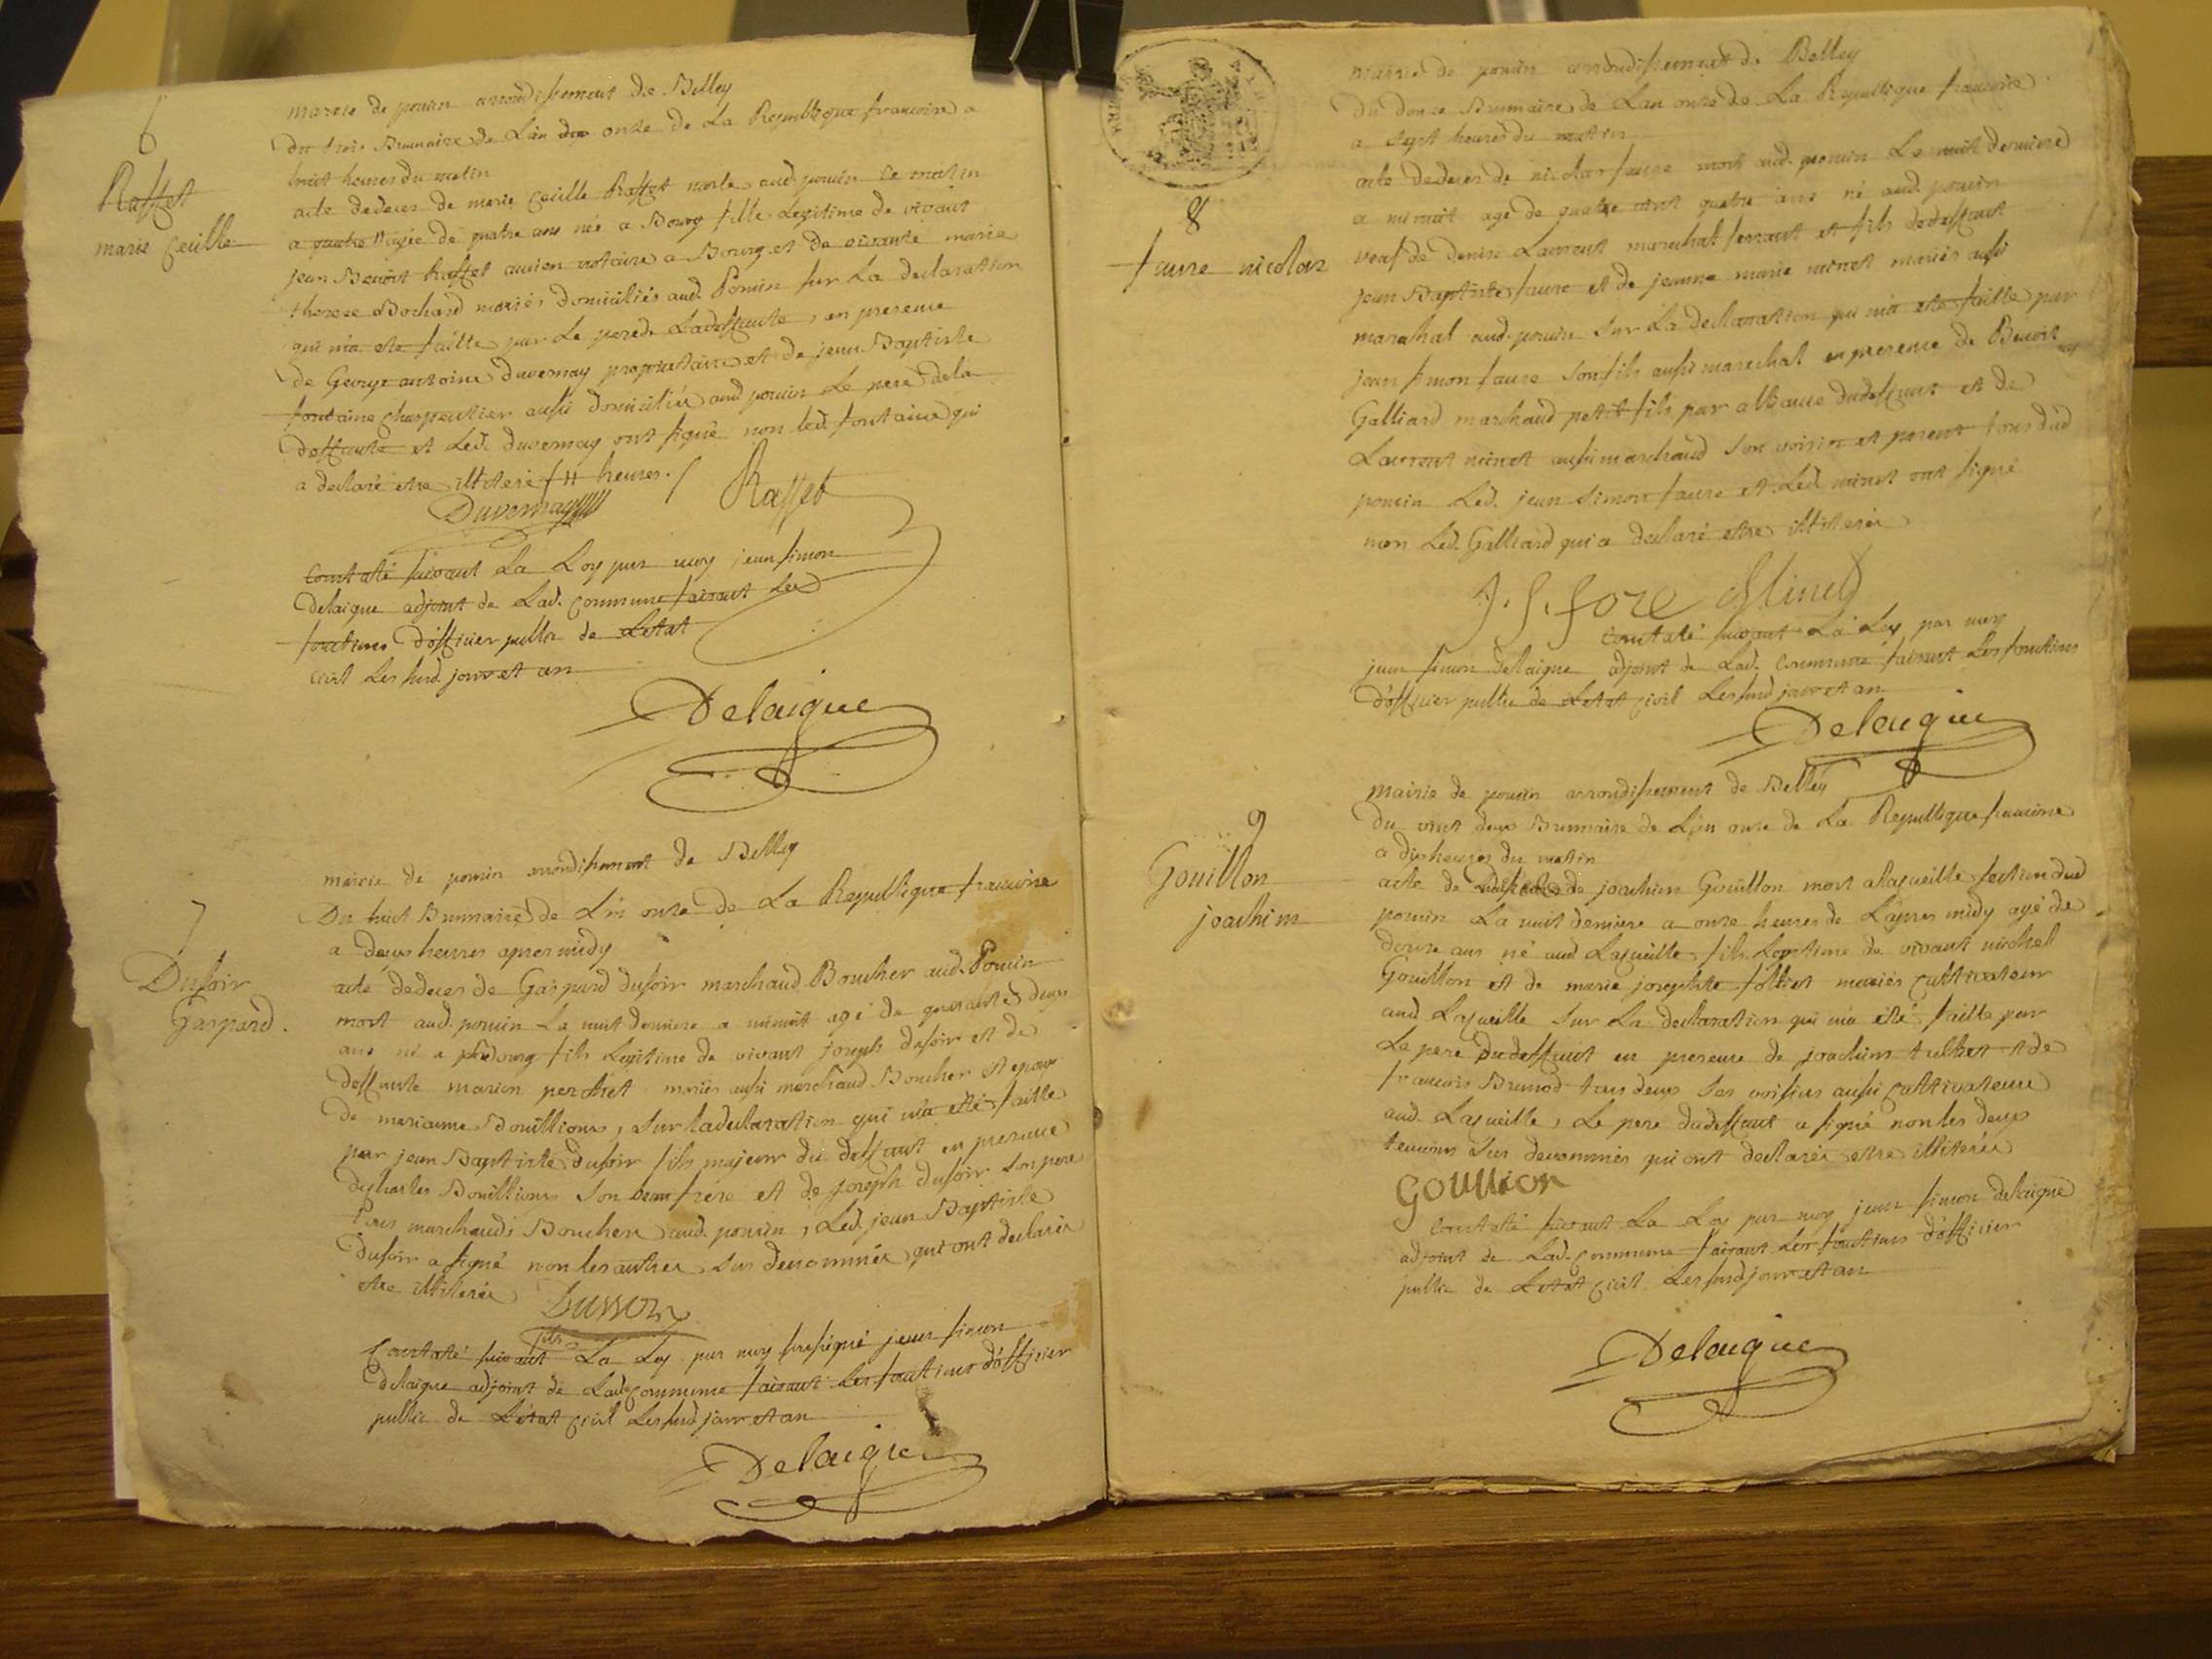 6
Raffet
marie Ceuille
mairie de poncin arrondissement de Belley
du trois Brumaire de L'an onze de La Republique francoise a
huit heures du matin
acte de deces de marie Ceuille Raffet morte aud. poncin ce matin
a quatre # agée de quatre ans né a Bourg fille Legitime de vivant
jean Benoit Raffet ancien notaire a Bourg et de vivante marie
therese Bochard mariés domiciliés aud. Poncin sur La declaration
qui m'a ete faitte par Le pere de Ladeffunte, en presence
de George antoine duvernay proprietaire et de jean Baptiste
fontaine Charpentier aussi domiciliés aud poncin Le pere dela
deffunte et Led. duvernay ont signé non led. fontaine qui
a declaré etre illiteré # heures ./
Duvernay Raffet
Constaté suivant La Loy par moy jean simon
delaigue adjoint de Lad. Commune faisant Les
fonctions d'officier public de L'etat
civil Les susd. jour et an
Delaigue
7
Dusoir
Gaspard.
mairie de poncin arrondissement de Belley
Du huit Brumaire de L'an onze de La Republique francoise
a deux heures apres midy
acte de deces de Gaspard dusoir marchand Boucher aud. Poncin
mort aud. poncin La nuit derniere a minuit agé de quarante deux
ans né a fils Legitime de vivant joseph dusoir et de
deffunte marion perchet mariés aussi marchand Boucher et epoux
de marianne Bouillioux, sur la declaration qui m'a eté faitte
par jean Baptiste dusoir fils majeur du deffunt en presence
de charles Bouillioux son beau frere et de joseph dusoir son pere
tous marchands Bouchers aud. poncin, Led. jean Baptiste
dusoir a signé non les autres sus denommés qui ont declarés
etre illiterés
Dussoir
fils
Constaté suivant La Loy par moy soussigné jean simon
delaigue adjoint de Lad. Commune faisant Les fonctions d'officier
public de L'état civil Les susd jour et an
Delaigue
8
faure nicolas
mairie de poncin arrondissement de Belley
du douze Brumaire de L'an onze de La Republique francoise
a sept heures du matin
acte de deces de nicolas faure mort aud. poncin La nuit derniere
a minuit agé de quatre vint quatre ans né aud. poncin
veuf de denise Laurent marechal ferrant et fils de deffunt
jean Baptiste faure et de jeanne marie minet mariés aussi
marechal aud. poncin sur La declaration qui m'a ete faitte par
jean simon faure son fils aussi marechal en presence de Benoit
Galliard marchand petit fils par alliance du deffunt et de
Laurent minet aussi marchand son voisin et parent tous dud
poncin Led. jean simon faure et Led. minet ont signé
non Led. Galliard qui a declaré etre illiteré
J. S. fore Minet
Constaté suivant La Loy par moy
jean simon delaigue adjoint de Lad. Commune faisant Les fonctions
d'officier public de L'etat civil Les susd jour et an
Delaigue
9
Gouillon
joachim
mairie de poncin arrondissement de Belley
Du vint deux Brumaire de L'an onze de La Republique francoise
a dix heures du matin
acte de de joachim Gouillon mort a Lacueille section dud
poncin La nuit derniere a onze heures de L'apres midy agé de
douze ans né aud Lacueille fils Legitime de vivant michel
Gouillon et de marie josephte folliet mariés Cultivateur
aud Lacueille sur La declaration qui m'a été faitte par
Le pere du deffunt en presence de joachim et de
francois Brunod tous deux ses voisins aussi Cultivateurs
aud. Lacueille, Le pere du deffunt a signé non les deux
temoins sus denommés qui ont declarés etre illiterés
Gouillon
Constaté suivant La Loy par moy jean simon delaigue
adjoint de Lad. Commune faisant Les fonctions d'officier
public de L'etat civil Les susd jour et an
Delaigue